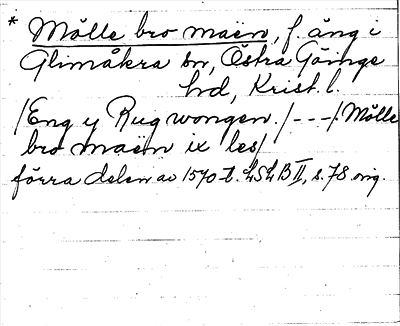 * Mölle bro maën, f. äng i
Glimåkra sn, Östra Göinge
hd, Krist. l.
/Eng y Rug wongen. /---/. Mölle
bro maën ix les/
förra delen av 1570-t. LSLB II, s. 78 orig.